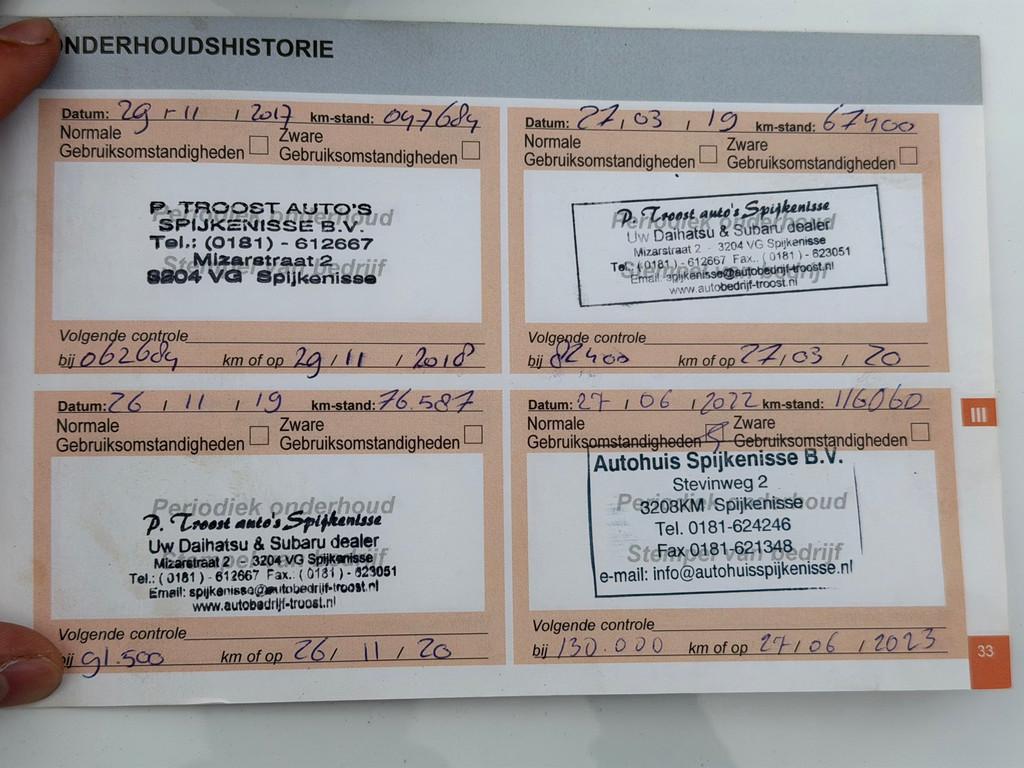 ONDERHOUDSHISTORIE
Datum: 29 - 11 / 2017 km-stand: 047684
Normale Gebruiksomstandigheden
Zware Gebruiksomstandigheden
Periodiek onderhoud
Stempel van bedrijf
P. TROOST AUTO'S
SPIJKENISSE B.V.
Tel.: (0181) - 612667
Mizarstraat 2
3204 VG Spijkenisse
Volgende controle
bij 062684 km of op 29 / 11 / 2018
Datum: 27 / 03 / 19 km-stand: 67400
Normale Gebruiksomstandigheden
Zware Gebruiksomstandigheden
Periodiek onderhoud
Stempel van bedrijf
P. Troost auto's Spijkenisse
Uw Daihatsu & Subaru dealer
Mizarstraat 2 - 3204 VG Spijkenisse
Tel.: (0181) - 612667 Fax.: (0181) - 623051
Email: spijkenisse@autobedrijf-troost.nl
www.autobedrijf-troost.nl
Volgende controle
bij 82400 km of op 27 / 03 / 20
Datum: 26 / 11 / 19 km-stand: 76.587
Normale Gebruiksomstandigheden
Zware Gebruiksomstandigheden
Periodiek onderhoud
P. Troost auto's Spijkenisse
Uw Daihatsu & Subaru dealer
Mizarstraat 2 3204 VG Spijkenisse
Tel.: (0181) - 612667 Fax.: (0181) - 623051
Email: spijkenisse@autobedrijf-troost.nl
www.autobedrijf-troost.nl
Volgende controle
bij 91.500 km of op 26 / 11 / 20
Datum: 27 / 06 / 2022 km-stand: 116060
Normale Gebruiksomstandigheden
Zware Gebruiksomstandigheden
Periodiek onderhoud
Stempel van bedrijf
Autohuis Spijkenisse B.V.
Stevinweg 2
3208KM Spijkenisse
Tel. 0181-624246
Fax 0181-621348
e-mail: info@autohuisspijkenisse.nl
Volgende controle
bij 130.000 km of op 27 / 06 / 2023
III
33